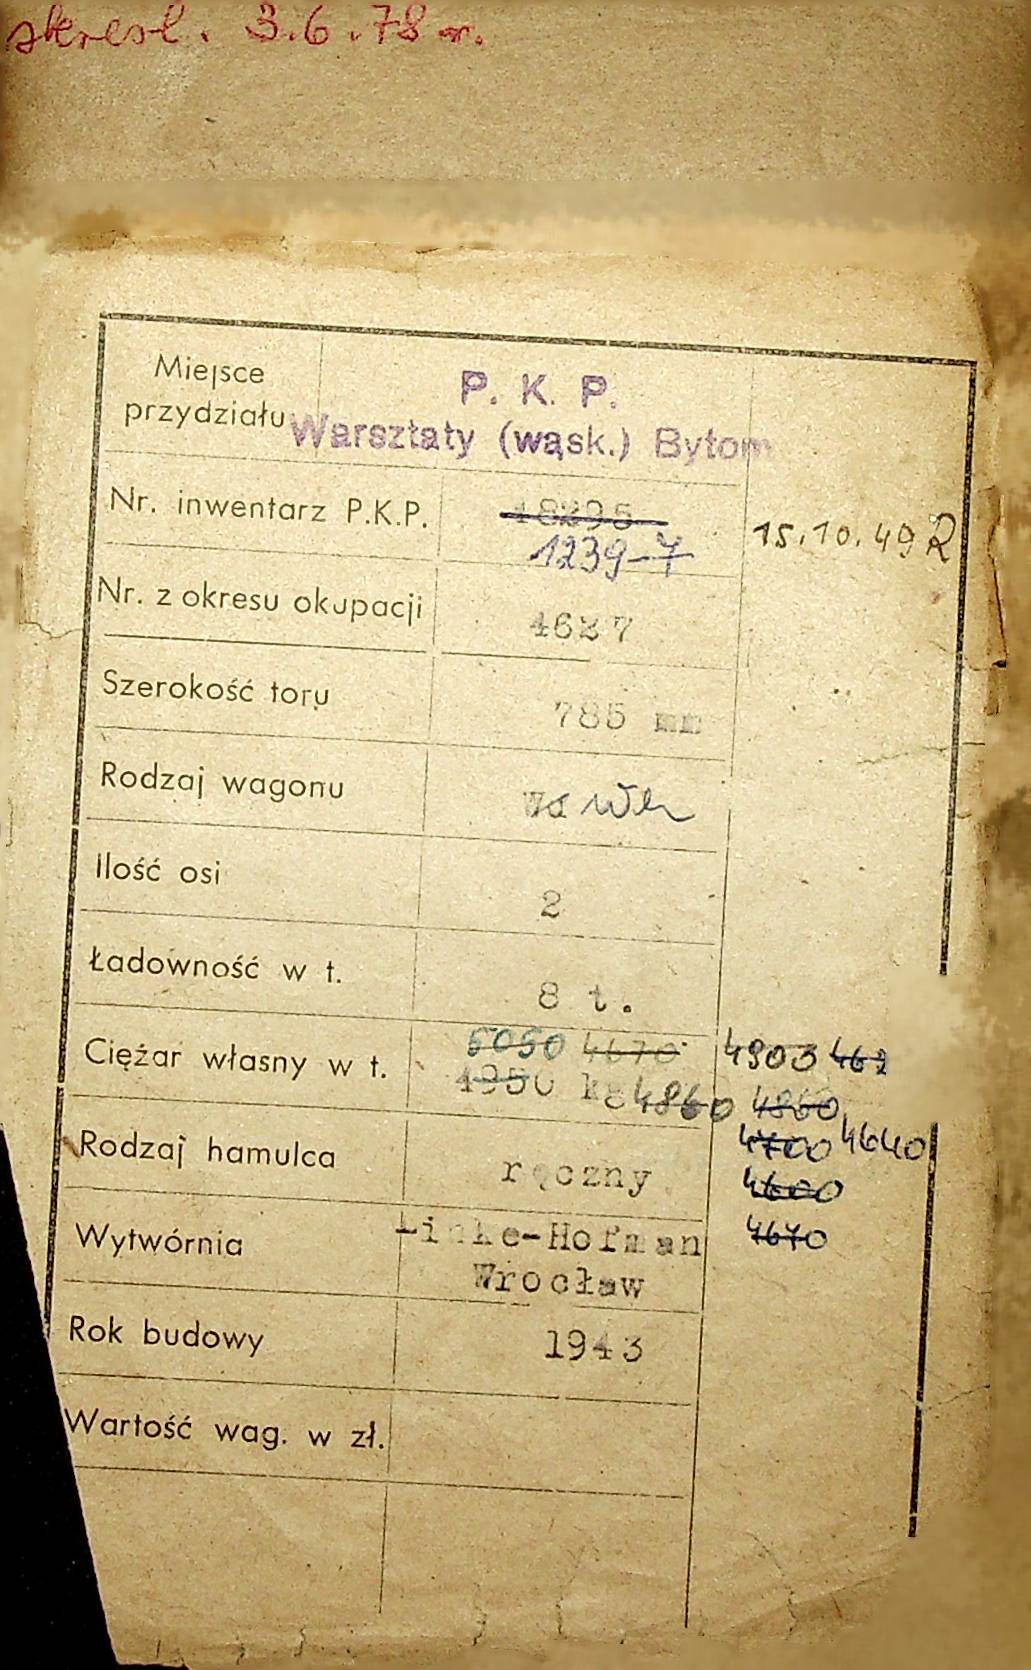 skreśl. 3.6.78 r.
Miejsce przydziału
P. K. P.
Warsztaty (wąsk.) Bytom
Nr. inwentarz P.K.P. 18295
1239-7 15.10.49 R
Nr. z okresu okupacji 4627
Szerokość toru 785 mm
Rodzaj wagonu
Ilość osi 2
Ładowność w t. 8 t.
Ciężar własny w t. 5050 4670 4900
4950 kg 4860 4860
4700 4640
4600
4670
Rodzaj hamulca ręczny
Wytwórnia Linke-Hofman
Wrocław
Rok budowy 1943
Wartość wag. w zł.